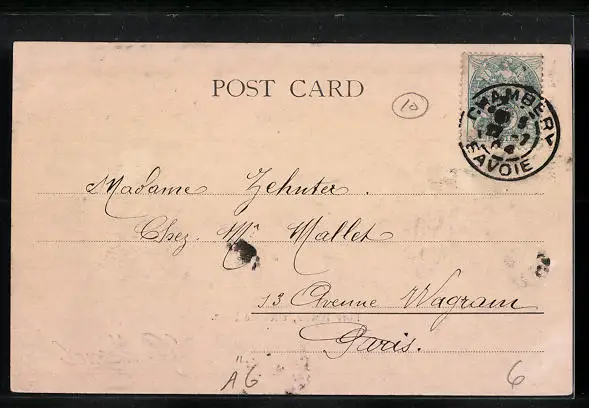 POST CARD
10
CHAMBERY
SAVOIE
Madame Zehnter.
Chez Mr Mallet
13 Avenue Wagram
Paris.
A6
6